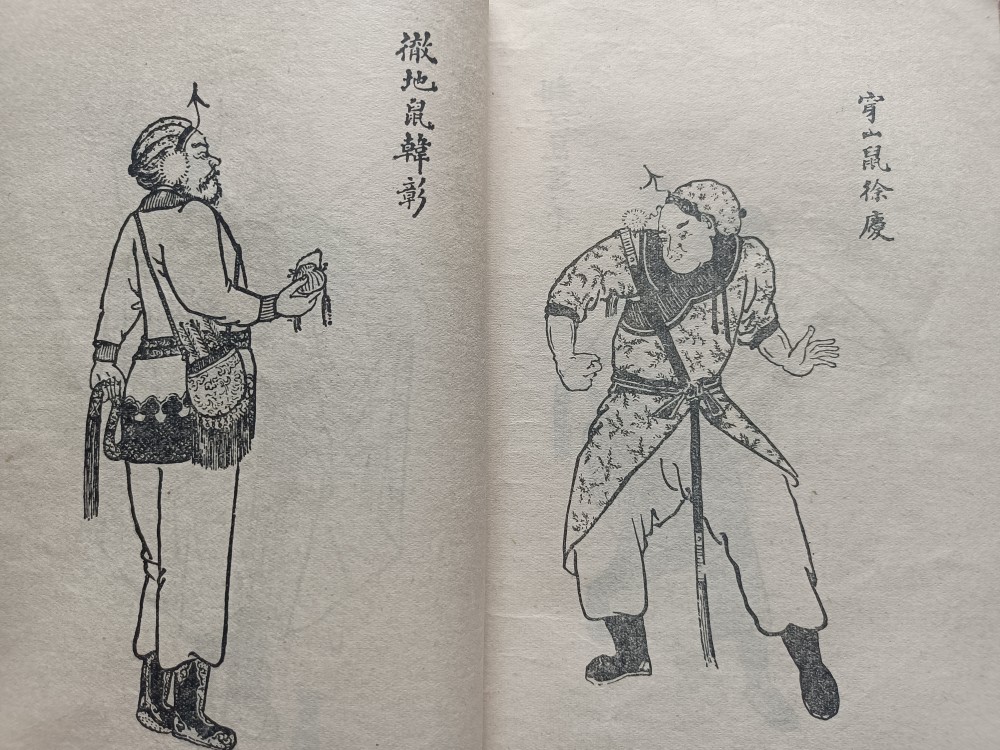 徹地鼠韓彰
穿山鼠徐慶